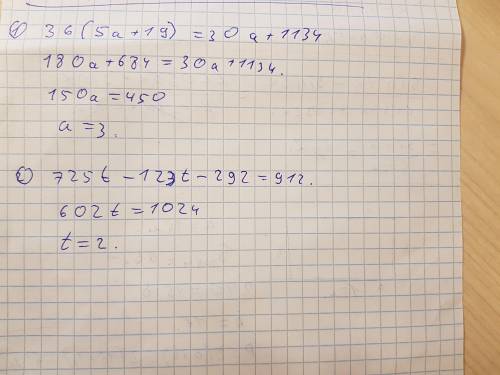 1) 36(5a+19)=30a+1134
180a+684=30a+1134.
150a=450
a=3.
2) 725t-123t-292=912.
602t=1024
t=2.